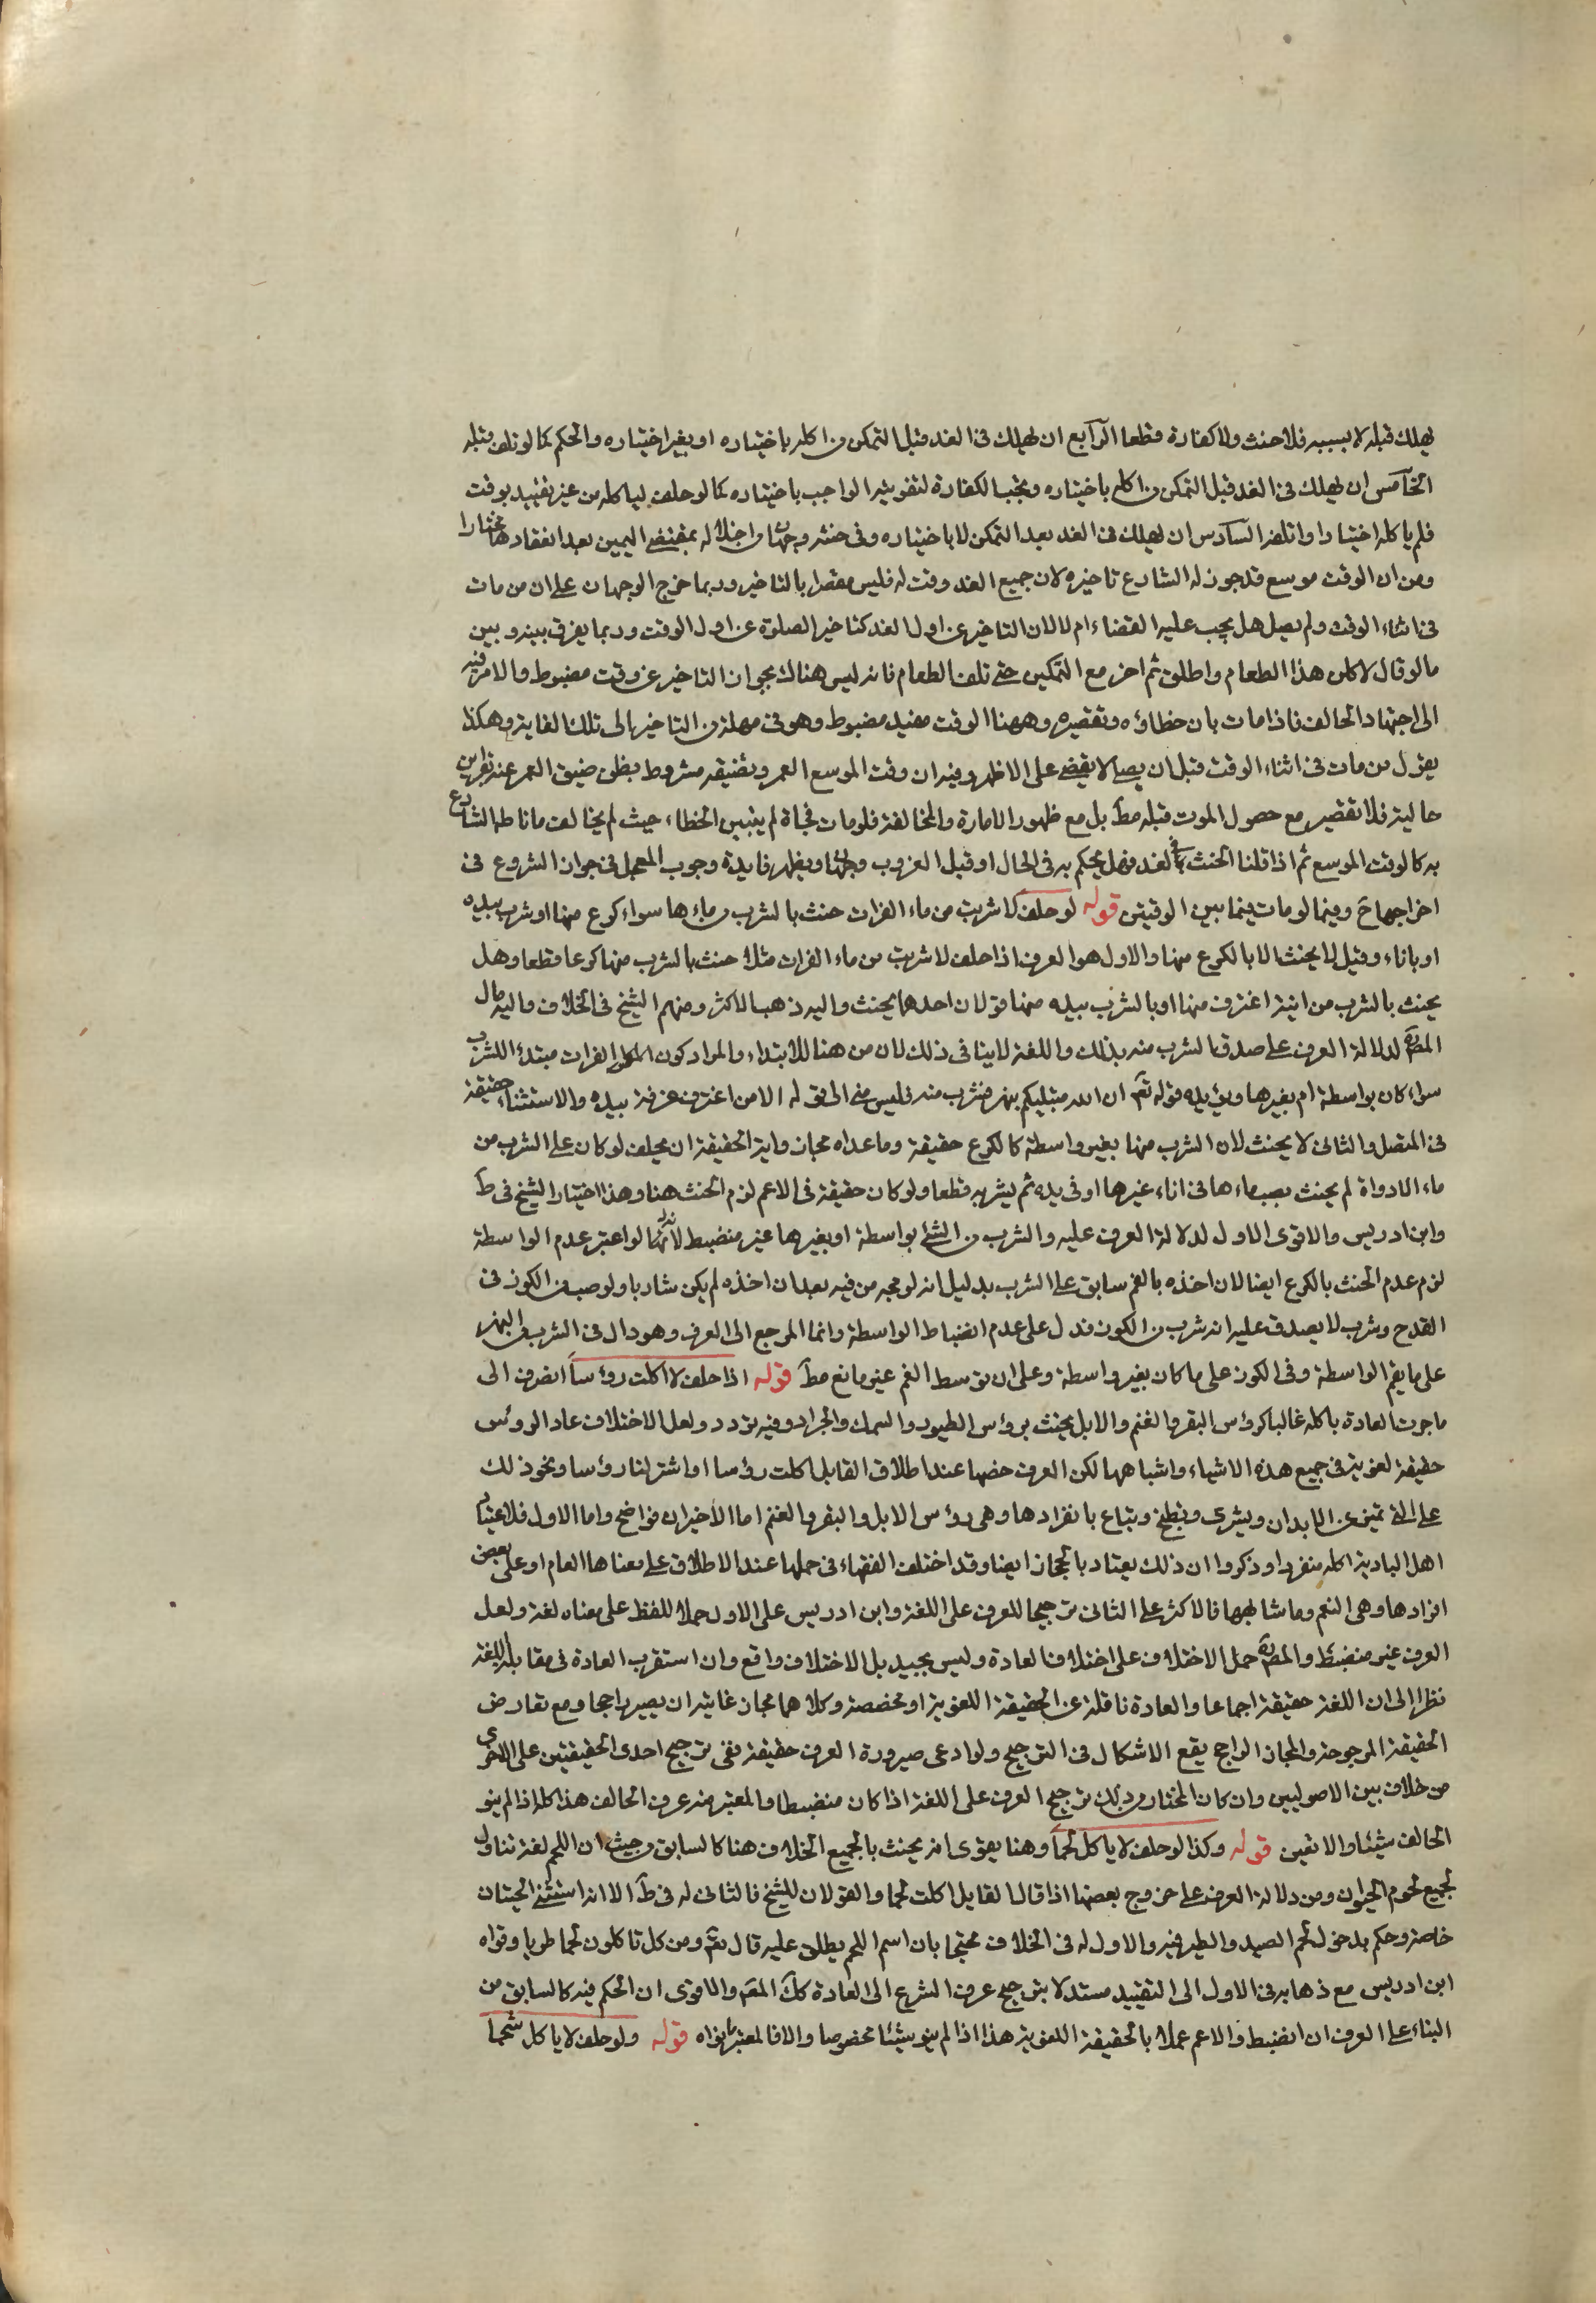 يهلك قبله لا بسببه فلا حنث ولا كفارة قطعا الرابع ان يهلك فى الغد قبل التمكن من اكله باختياره او بغير اختياره والحكم كما لو تلف قبله
الخامس ان يهلك فى الغد قبل التمكن من اكله باختياره وتجب الكفارة لتفويته الواجب باختياره كما لو حلف لياكله من غير تقييد بوقت
فلم ياكله اختيارا واتلفه السادس ان يهلك فى الغد بعد التمكن لا باختياره وفى حنثه وجهان من اخلاله بمقتضى اليمين بعد انعقادها مختارا
ومن ان الوقت موسع قد جوز له الشارع تاخيره لان جميع الغد وقت له فليس مقصرا بالتاخير وربما خرج الوجهان على ان من مات
فى اثناء الوقت ولم يصل هل يجب عليه القضاء ام لا لان التاخير عن اول الغد كتاخير الصلوة عن اول الوقت وربما يفرق بينه وبين
ما لو قال لاكلن هذا الطعام واطلق ثم اخر مع التمكين حتى تلف الطعام فانه ليس هناك بجواز التاخير عن وقت مضبوط والامر فيه
الى اجتهاد الحالف فاذا مات بان خطاؤه وتقصيره وههنا الوقت مقيد مضبوط وهو فى مهلة من التاخير الى تلك الغاية وهكذا
يقول من مات فى اثناء الوقت قبل ان يصلى لا يقضى على الاظهر وفيه ان وقت الموسع العمر وتضيقه مشروط بظن ضيق العمر عنه بقراين
حالية فلا تقصير مع حصول الموت قبله مط بل مع ظهور الامارة والمخالفة فلو مات فجاة لم يتبين الخطاء حيث لم يخالف ما ناطه الشارع
به كالوقت الموسع ثم اذا قلنا الحنث فى الغد فهل يحكم به فى الحال او قبل الغروب وجهان ويظهر فايدة وجوب المعجل فى جواز الشروع فى
اخراجها ح وفيما لو مات فيما بين الوقتين قوله لو حلف لا شربت من ماء الفرات حنث بالشرب من ماءها سواء كرع منها او شرب بيده
او باناء وقيل لا يحنث الا بالكرع منها والاول هو العرف اذا حلف لا شربت من ماء الفرات مثلا حنث بالشرب منها كرعا قطعا وهل
يحنث بالشرب من انية اغترف منها او بالشرب بيده منها قولان احدهما يحنث واليه ذهب الاكثر ومنهم الشيخ فى الخلاف واليه مال
المص ره لدلالة العرف على صدق الشرب منه بذلك واللغة لا ينافى ذلك لان من هنا للابتداء والمراد كون الفرات مبتدأ للشرب
سواء كان بواسطة ام بغيرها ويؤيده قوله تع ان الله مبتليكم بنهر فمن شرب منه فليس منى الى قوله الا من اغترف غرفة بيده والاستثناء حقيقة
فى المتصل والثانى لا يحنث لان الشرب منها بغير واسطة كالكرع حقيقة وما عداه مجاز واية الحقيقة ان يحلف لو كان على الشرب من
ماء الادواة لم يحنث بصب ماءها فى اناء غيرها او فى يده ثم يشربه قطعا ولو كان حقيقة فى الاعم لزم الحنث هنا وهذا اختيار الشيخ فى ط
وابن ادريس والاقوى الاول لدلالة العرف عليه والشرب من الشئ بواسطة او بغيرها غير منضبط لانه لو اعتبر عدم الواسطة
لزم عدم الحنث بالكرع ايضا لان اخذه بالفم سابق على الشرب بدليل انه لو مجه من فيه بعد ان اخذه لم يكن شاربا ولو صب من الكوز فى
القدح وشرب لا يصدق عليه انه شرب من الكوز فدل على عدم انضباط الواسطة وانما المرجع الى العرف وهو دال فى الشرب من النهر
على ما يعم الواسطة وفى الكوز على ما كان بغير واسطة وعلى ان توسط الفم غير مانع مط قوله اذا حلف لا اكلت رؤسا انصرف الى
ما جرت العادة باكله غالبا كرؤس البقر والغنم والابل يحنث برؤس الطيور والسمك والجراد وفيه تردد ولعل الاختلاف عاد الروئس
حقيقة لغوية فى جميع هذه الاشياء واشباهها لكن العرف خصها عند اطلاق القايل اكلت رؤسا او اشتر لنا رؤسا ونحو ذلك
على التى تميز عن الابدان ويشرى وتطبخ وتباع بانفرادها وهى رؤس الابل والبقر والغنم اما الاخيران فواضح واما الاول فلاعتياد
اهل البادية اكله منفردا وذكروا ان ذلك يعتاد بالحجاز ايضا وقد اختلف الفقهاء فى حملها عند الاطلاق على معناها العام او على بعض
افرادها وهى النعم وما شابهها فالاكثر على الثانى ترجيحا للعرف على اللغة وابن ادريس على الاول حملا للفظ على معناه لغة ولعل
العرف غير منضبط والمص ره حمل الاختلاف على اختلاف العادة وليس بجيد بل الاختلاف واقع وان استقرب العادة فى مقابلة اللغة
نظرا الى ان اللغة حقيقة اجماعا والعادة ناقلة عن الحقيقة اللغوية او مخصصة وكلاهما مجاز غايته ان يصير راجحا ومع تعارض
الحقيقة المرجوحة والمجاز الراجح يقع الاشكال فى الترجيح ولو ادعى صيرورة العرف حقيقة بقى ترجيح احدى الحقيقتين على الاخرى
من خلاف بين الاصوليين وان كان المختار من ذلك ترجيح العرف على اللغة اذا كان منضبطا والمعتبر منه عرف الحالف هذا كله اذا لم ينو
الحالف شيئا والا تعين قوله وكذا لو حلف لا ياكل لحما وهنا يقوى انه يحنث بالجميع الخلاف هنا كالسابق من حيث ان اللحم لغة تناول
لجميع لحوم الحيوان ومن دلالة العرف على خروج بعضها اذا قال القايل اكلت لحما والقولان للشيخ فالثانى له فى ط الا انه استثنى الحيتان
خاصة وحكم بدخول لحم الصيد والطير فيه والاول له فى الخلاف محتجا بان اسم اللحم يطلق عليه قال تع ومن كل تاكلون لحما طريا وقواه
ابن ادريس مع ذهابه فى الاول الى التقييد مستدلا بترجيح عرف الشرع الى العادة كك المص والاقوى ان الحكم فيه كالسابق من
البناء على العرف ان انضبط والاعم عملا بالحقيقة اللغوية هذا اذا لم ينو شيئا مخصوصا والا فالمعتبر ما نواه قوله ولو حلف لا ياكل شحما